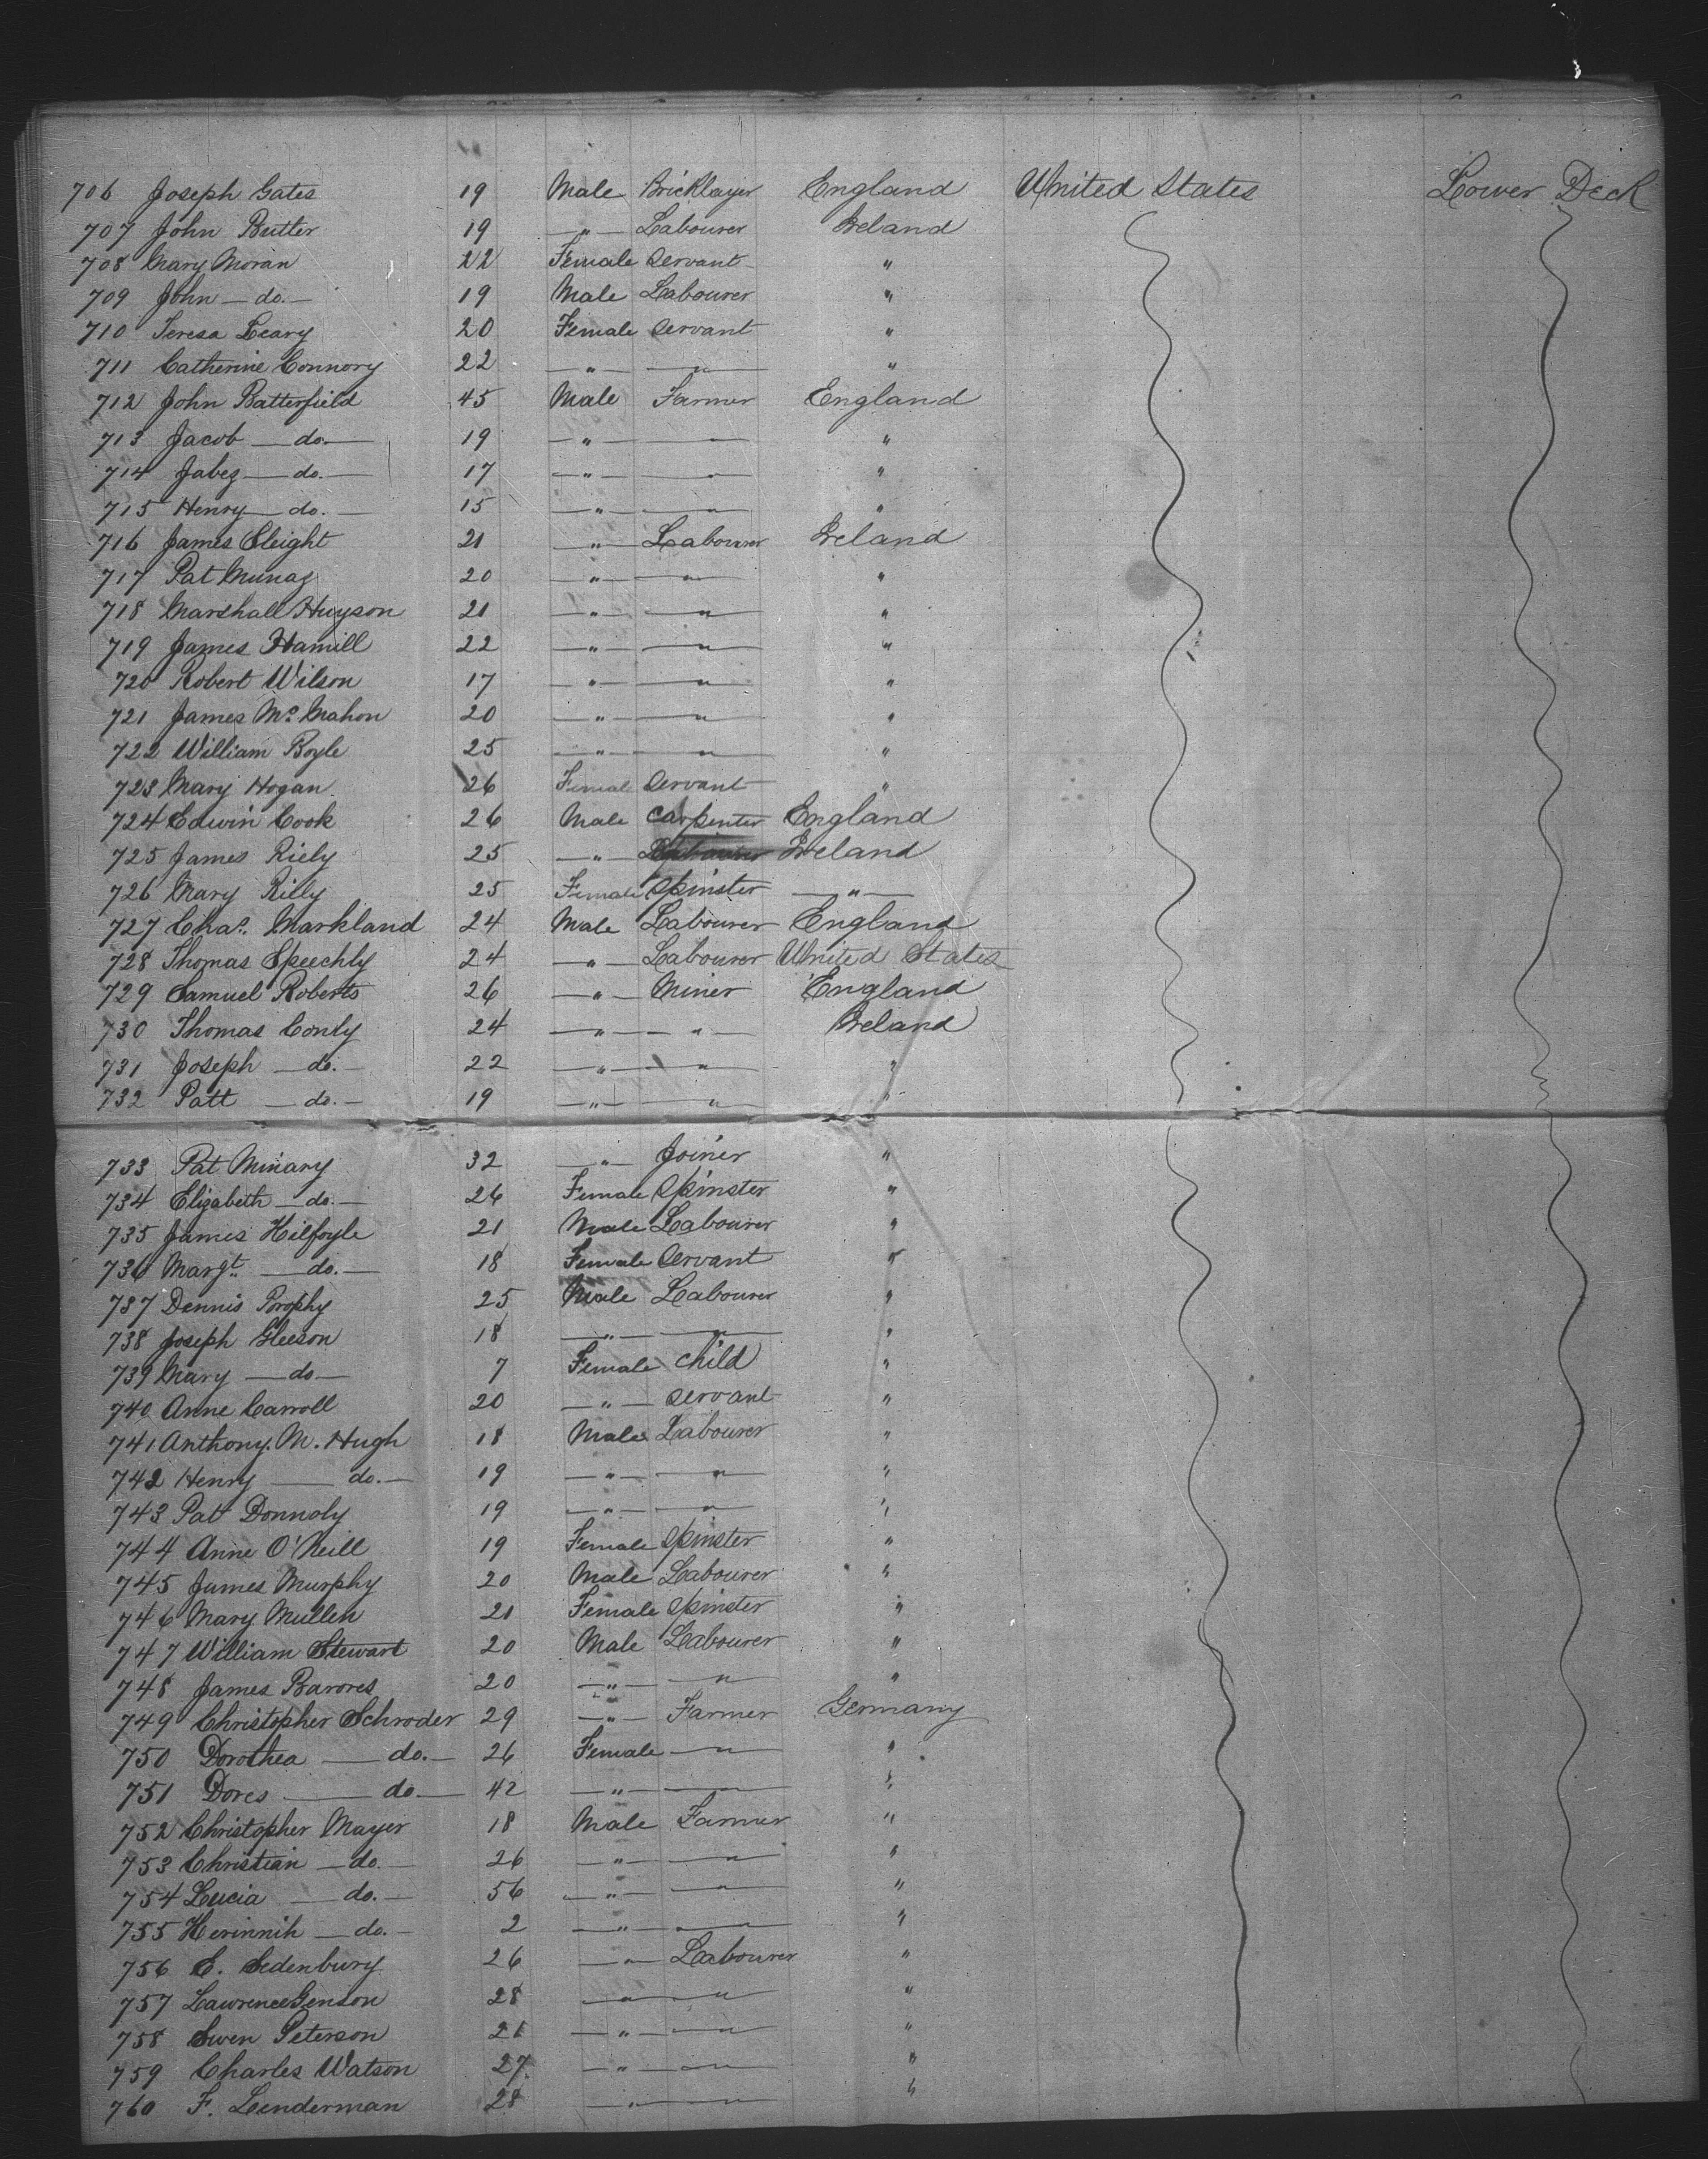 706 Joseph Gates 19 Male Bricklayer England United States Lower Deck
707 John Butler 19 —"— Labourer Ireland
708 Mary Moran 22 Female Servant "
709 John — do. — 19 Male Labourer "
710 Teresa Leary 20 Female Servant "
711 Catherine Connory 22 —"— —"— "
712 John Batterfield 45 Male Farmer England
713 Jacob — do. — 19 —"— —"— "
714 Jabez — do. — 17 —"— —"— "
715 Henry — do. — 15 —"— —"— "
716 James Sleight 21 —"— Labourer Ireland
717 Pat 20 —"— —"— "
718 Marshall Huyson 21 —"— —"— "
719 James Hamill 22 —"— —"— "
720 Robert Wilson 17 —"— —"— "
721 James Mc Mahon 20 —"— —"— "
722 William Boyle 25 —"— —"— "
723 Mary Hogan 26 Female Servant "
724 Edwin Cook 26 Male Carpenter England
725 James Riely 25 —"— Labourer Ireland
726 Mary Rilly 25 Female Spinster —"—
727 Chas. Markland 24 Male Labourer England
728 Thomas Speechly 24 —"— Labourer United States
729 Samuel Roberts 26 —"— Miner England
730 Thomas Conly 24 —"— —"— Ireland
731 Joseph — do. — 22 —"— —"— "
732 Patt — do. — 19 —"— —"— "
733 Pat Minary 32 —"— Joiner "
734 Elizabeth — do. — 26 Female Spinster "
735 James Kilfoyle 21 Male Labourer "
736 Margt. — do. — 18 Female Servant "
737 Dennis Brophy 25 Male Labourer "
738 Joseph Gleeson 18 —"— —"— "
739 Mary — do — 7 Female Child "
740 Anne Carroll 20 —"— Servant "
741 Anthony. M. Hugh 18 Male Labourer "
742 Henry — do. — 19 —"— —"— "
743 Patt Donnoly 19 —"— —"— "
744 Anne O'Neill 19 Female Spinster "
745 James Murphy 20 Male Labourer "
746 Mary Mullen 21 Female Spinster "
747 William Stewart 20 Male Labourer "
748 James Barores 20 —"— —"— "
749 Christopher Schroder 29 —"— Farmer Germany
750 Dorothea — do. — 26 Female —"— "
751 Dores — do — 42 —"— —"— "
752 Christopher Mayer 18 Male Farmer "
753 Christian — do. — 26 —"— —"— "
754 Lucia — do. — 56 —"— —"— "
755 Herinnih — do. — 2 —"— —"— "
756 E. Sedenbury 26 —"— Labourer "
757 Lawrence Genson 28 —"— —"— "
758 Swen Peterson 21 —"— —"— "
759 Charles Watson 27 —"— —"— "
760 F. Lenderman 28 —"— —"— "